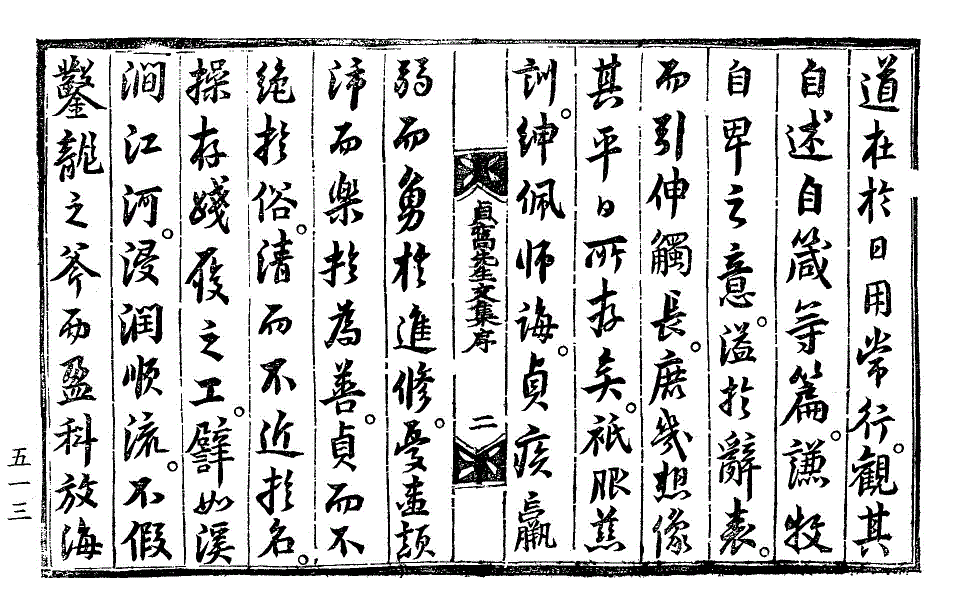 道在於日用常行。觀其
自述自箴等篇。謙牧
自卑之意。溢於辭表。
而引伸觸長。庶幾想像
其平日所存矣。祇服蕉
訓。紳佩師誨。貞疾羸
貞窩先生文集序 二
弱而勇於進修。憂患顛
沛而樂於為善。貞而不
絶於俗。清而不近於名。
操存踐履之工。譬如溪
澗江河。浸潤順流。不假
鑿龍之斧而盈科放海
五一三